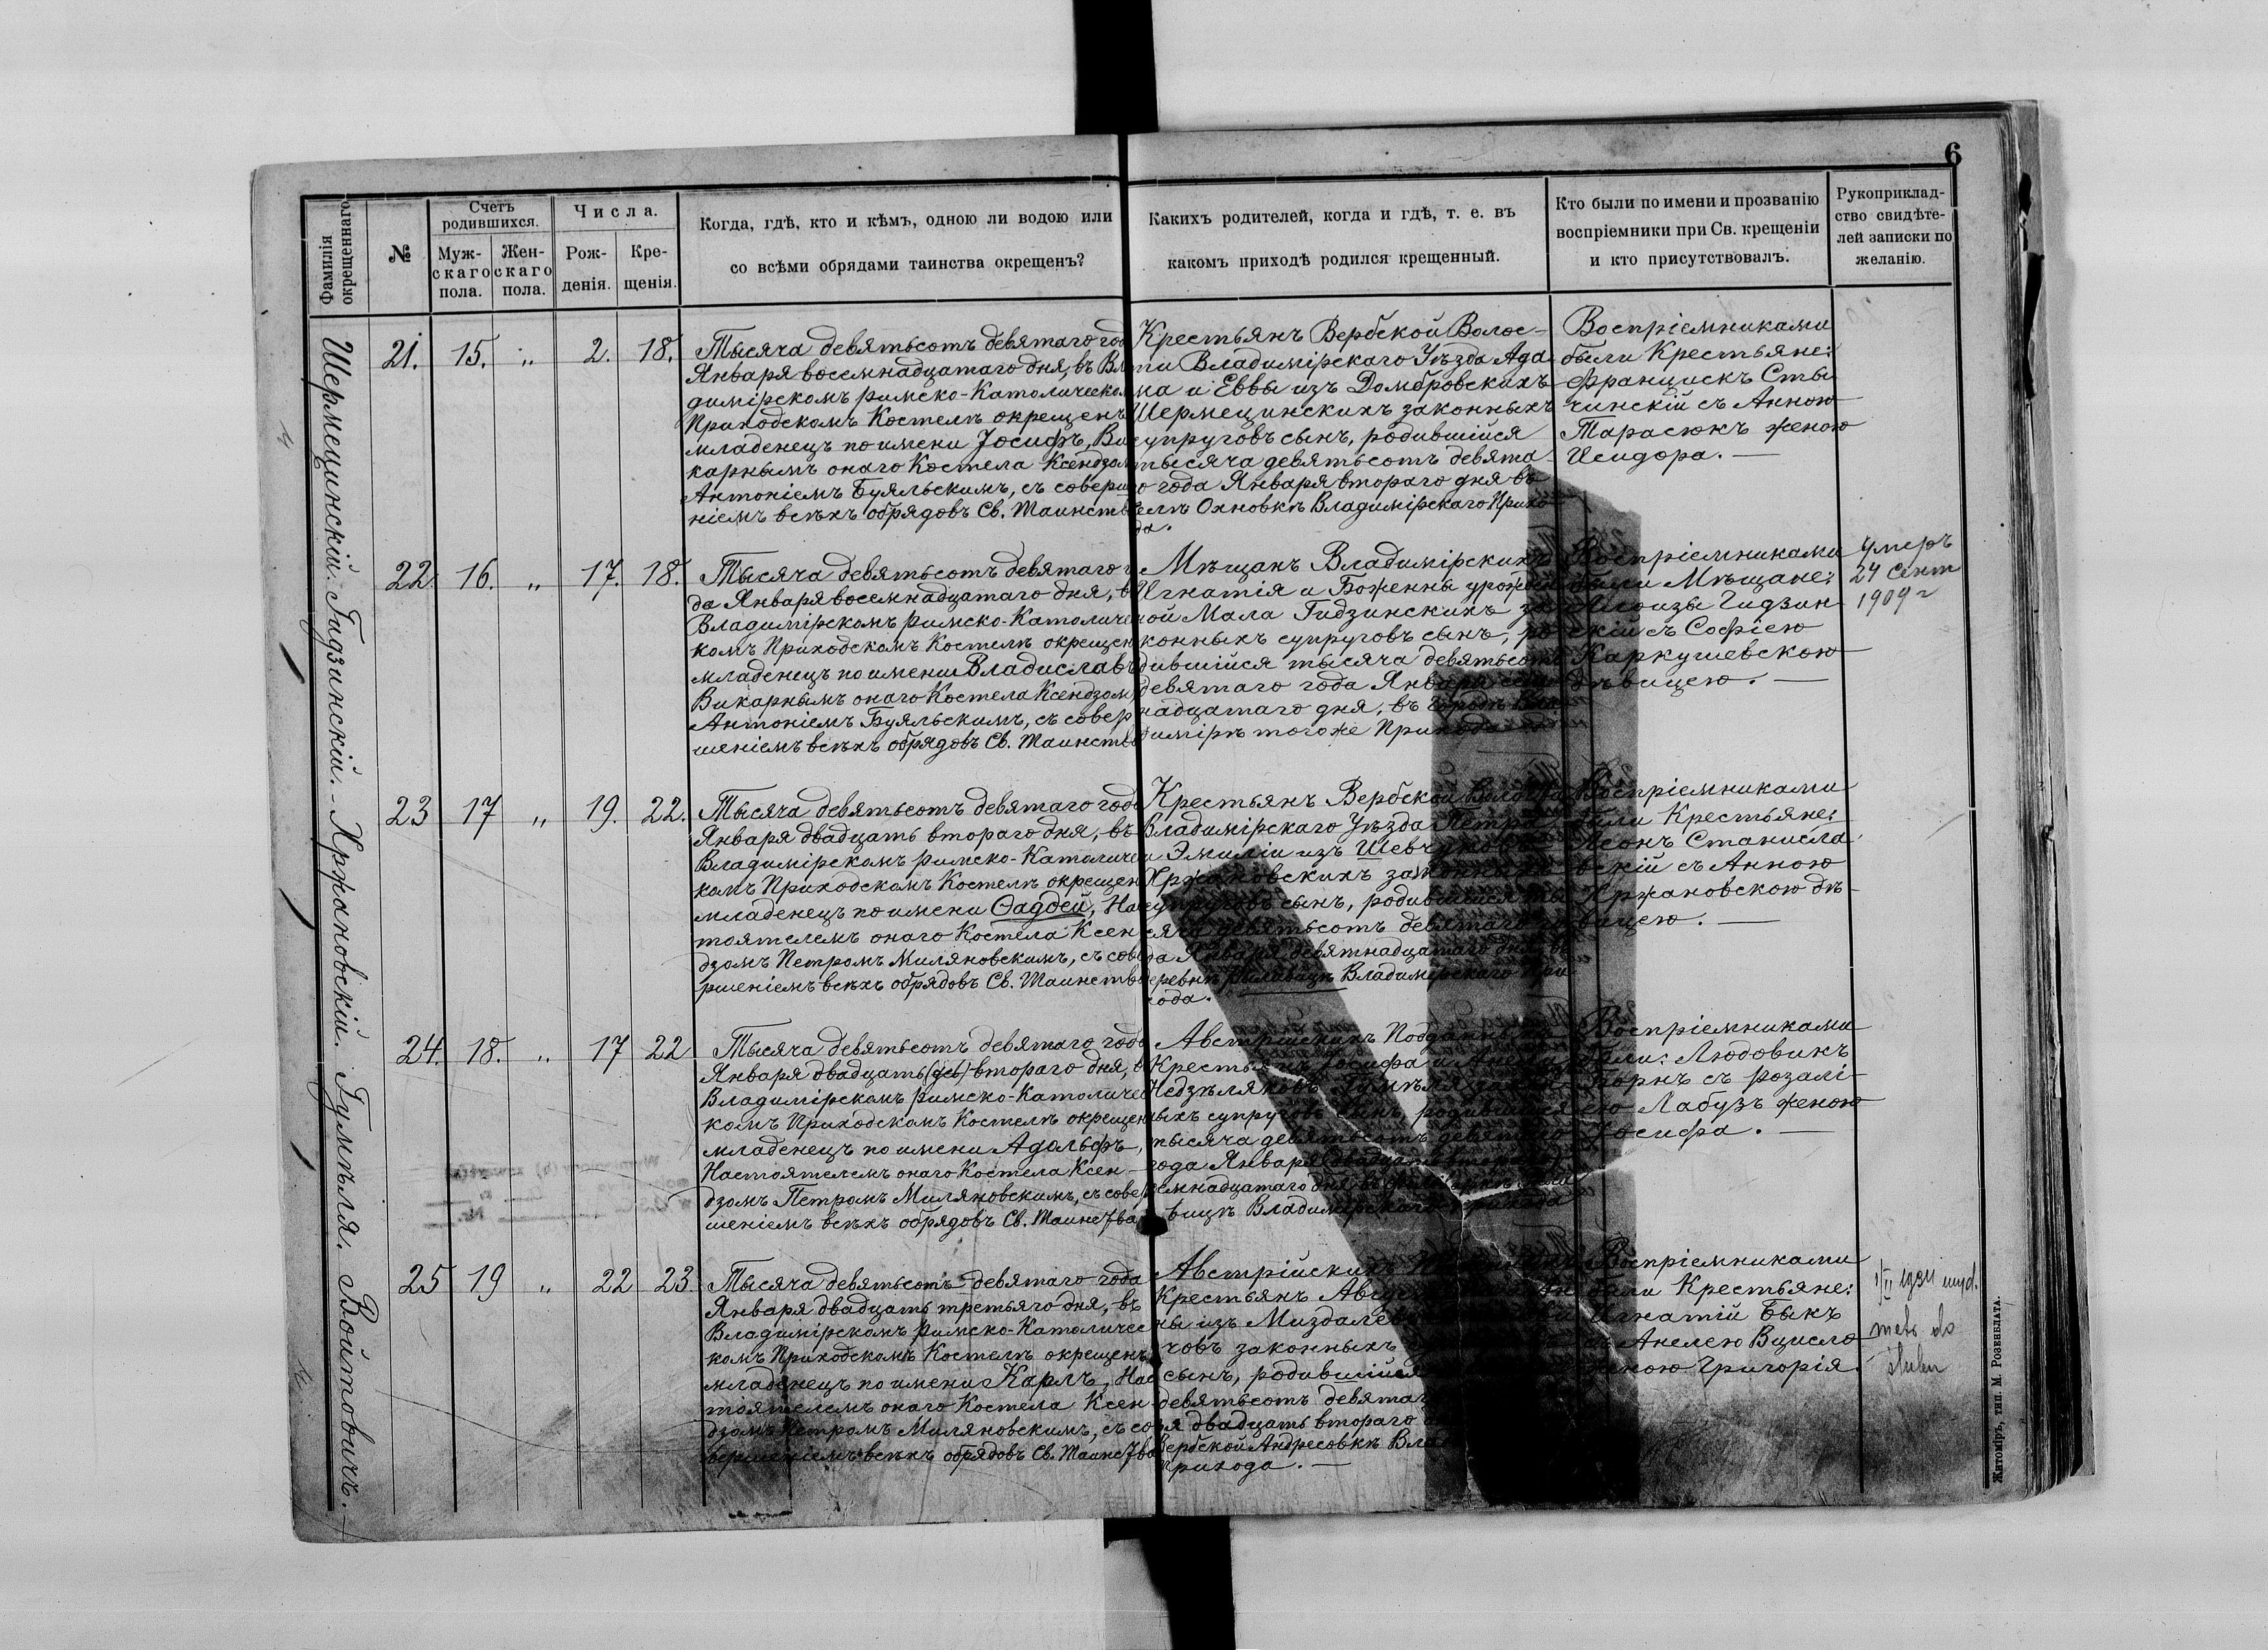 6
Фамилія окрещеннаго
№
Счетъ родившихся.
Муж-
скаго
пола.
Жен-
скаго
пола.
Числа.
Рож-
денія.
Кре-
щенія.
Когда, гдѣ, кто и кѣмъ, одною ли водою или
со всѣми обрядами таинства окрещенъ?
Какихъ родителей, когда и гдѣ, т. е. въ
какомъ приходѣ родился крещенный.
Кто были по имени и прозванію
воспріемники при Св. крещеніи
и кто присутствовалъ.
Рукоприклад-
ство свидѣте-
лей записки по
желанію.
Шермецинскій. Гидзинскій. Кржановскій. Гумѣля. Войтовичъ.
21. 15. „ 2. 18.
Тысяча девятьсотъ девятаго год
Января восемнадцатаго дня, въ Вла
димірскомъ римско-Католическом
Приходскомъ Костелѣ окрещенъ
младенецъ по имени Іосифъ, Ви
карнымъ онаго Костела Ксендзом
Антоніемъ Буяльскимъ, съ соверше
ніемъ всѣхъ обрядовъ Св. Таинств
Крестьянъ Вербской Волос-
ти Владимірскаго Уѣзда Ада
ма и Еввы изъ Домбровскихъ
Шермецинскихъ законныхъ
супруговъ сынъ, родившійся
тысяча девятьсотъ девята-
го года Января втораго дня въ
селѣ Охновкѣ Владимірскаго Прихо
да.
Воспріемниками
были Крестьяне:
Францискъ Сты
чинскій съ Анною
Тарасюкъ женою
Исидора. —
22. 16. „ 17. 18.
Тысяча девятьсотъ девятаго г
да Января восемнадцатаго дня, в
Владимірскомъ римско-Католичес
комъ Приходскомъ Костелѣ окрещен
младенецъ по имени Владиславъ
Викарнымъ онаго Костела Ксендзом
Антоніемъ Буяльскимъ, съ совер
шеніемъ всѣхъ обрядовъ Св. Таинств
Мѣщанъ Владимірскихъ
Игнатія и Боженны урожден
ной Мала Гидзинскихъ за
конныхъ супруговъ сынъ, ро
дившійся тысяча девятьсотъ
девятаго года Января сем
надцатаго дня, въ городѣ Вла
димірѣ тогоже Прихода
Воспріемниками
были Мѣщане:
Алоизы Гидзин-
скій съ Софіею
Каркушевскою
дѣвицею. —
Умеръ
24 Сент
1909 г
23 17 „ 19. 22.
Тысяча девятьсотъ девятаго года
Января двадцать втораго дня, въ
Владимірскомъ римско-Католичес
комъ Приходскомъ Костелѣ окрещен
младенецъ по имени Ѳаддей, Нас
тоятелемъ онаго Костела Ксен
дзомъ Петромъ Миляновскимъ, съ сове
ршеніемъ всѣхъ обрядовъ Св. Таинств
Крестьянъ Вербской Волости
Владимірскаго Уѣзда Петра
и Эмиліи изъ Шевчуковъ
Кржановскихъ законныхъ
супруговъ сынъ, родившійся ты
сяча девятьсотъ девятаго го
да Января девятнадцатаго дня въ
деревнѣ Владимірскаго При
хода.
Воспріемниками
были Крестьяне:
Леонъ Станисла
вскій съ Анною
Кржановскою дѣ-
вицею. —
24. 18. „ 17 22
Тысяча девятьсотъ девятаго года
Января двадцать втораго дня, в
Владимірскомъ римско-Католичес
комъ Приходскомъ Костелѣ окрещен
младенецъ по имени Адольфъ,
Настоятелемъ онаго Костела Ксен-
дзомъ Петромъ Миляновскимъ, съ совер
шеніемъ всѣхъ обрядовъ Св. Таинства
Австрійскихъ Подданныхъ
Крестьянъ Іосифа и
Недзѣляковъ Гумѣля закон
ныхъ супруговъ сынъ, родившійся
тысяча девятьсотъ девятаго
года Января
семнадцатаго дня, въ
вицѣ Владимірскаго Прихода
Воспріемниками
были: Людовикъ
Борнъ съ Розалі-
ею Лабузъ женою
Іосифа. —
25 19 „ 22 23.
Тысяча девятьсотъ девятаго года
Января двадцать третьяго дня, въ
Владимірскомъ римско-Католичес
комъ Приходскомъ Костелѣ окрещенъ
младенецъ по имени Карлъ, Нас
тоятелемъ онаго Костела Ксен-
дзомъ Петромъ Миляновскимъ, съ со
вершеніемъ всѣхъ обрядовъ Св. Таинства
Австрійскихъ
Крестьянъ
ны изъ
човъ законныхъ
сынъ, родившійся
девятьсотъ девятаг
ря двадцать втораго
Вербской Андресовкѣ Влад
Прихода. —
Воспріемниками
были Крестьяне:
Игнатій Быкъ
съ Анелею Вцисло
женою Григорія.
1/II 1934 wyd.
metr do
ślubu
Житоміръ, тип. М. Розенблата.